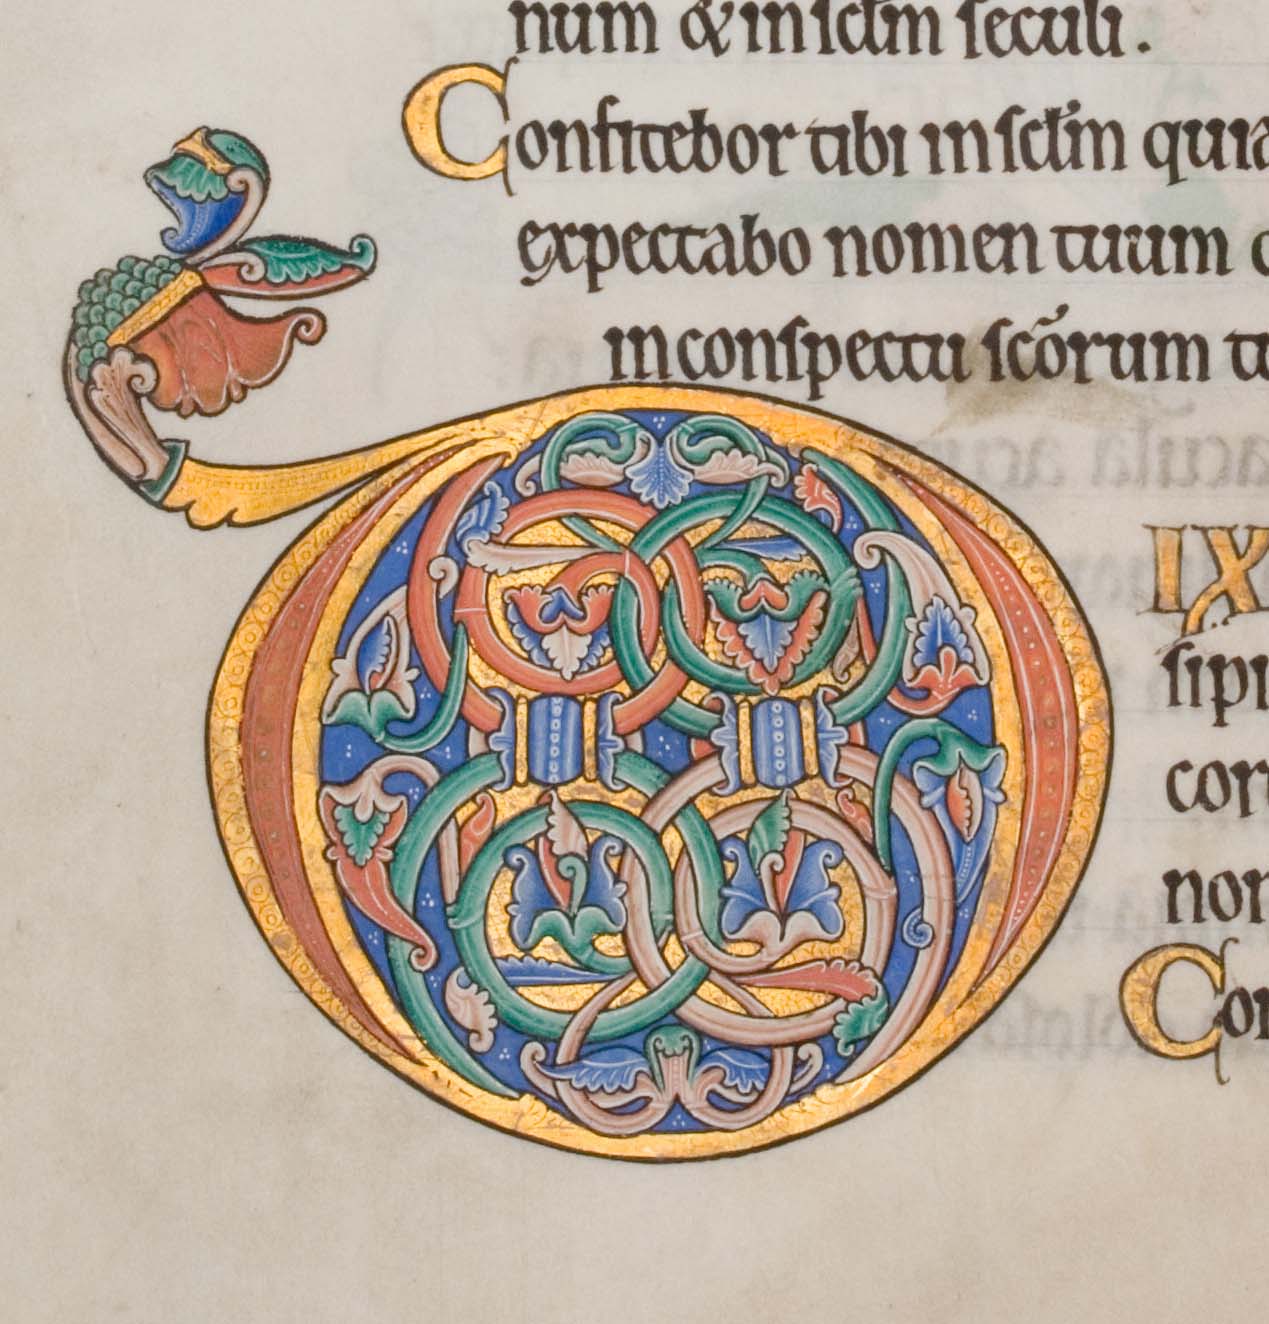 num & in sclm seculi.
Confitebor tibi in sclm quia
expectabo nomen tuum
in conspectu scōrum tu
D IX
sipi
cor
non
Cor